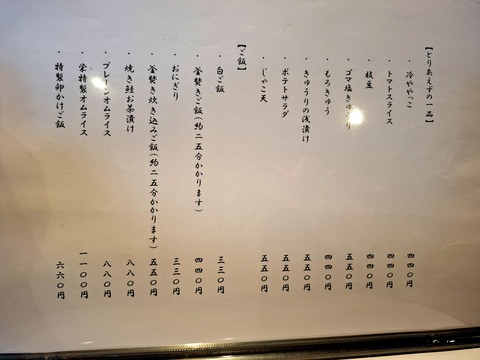 【とりあえずの一品】
・冷ややっこ 四四〇円
・トマトスライス 四四〇円
・枝豆 四四〇円
・ゴマ塩きゅうり 五五〇円
・もろきゅう 四四〇円
・きゅうりの浅漬け 五五〇円
・ポテトサラダ 五五〇円
・じゃこ天 五五〇円
【ご飯】
・白ご飯 三三〇円
・釜焚きご飯(約二五分かかります) 四四〇円
・おにぎり 三三〇円
・釜焚き炊き込みご飯(約二五分かかります) 五五〇円
・焼き鮭お茶漬け 八八〇円
・プレーンオムライス 八八〇円
・栄特製オムライス 一一〇〇円
・特製卵かけご飯 六六〇円